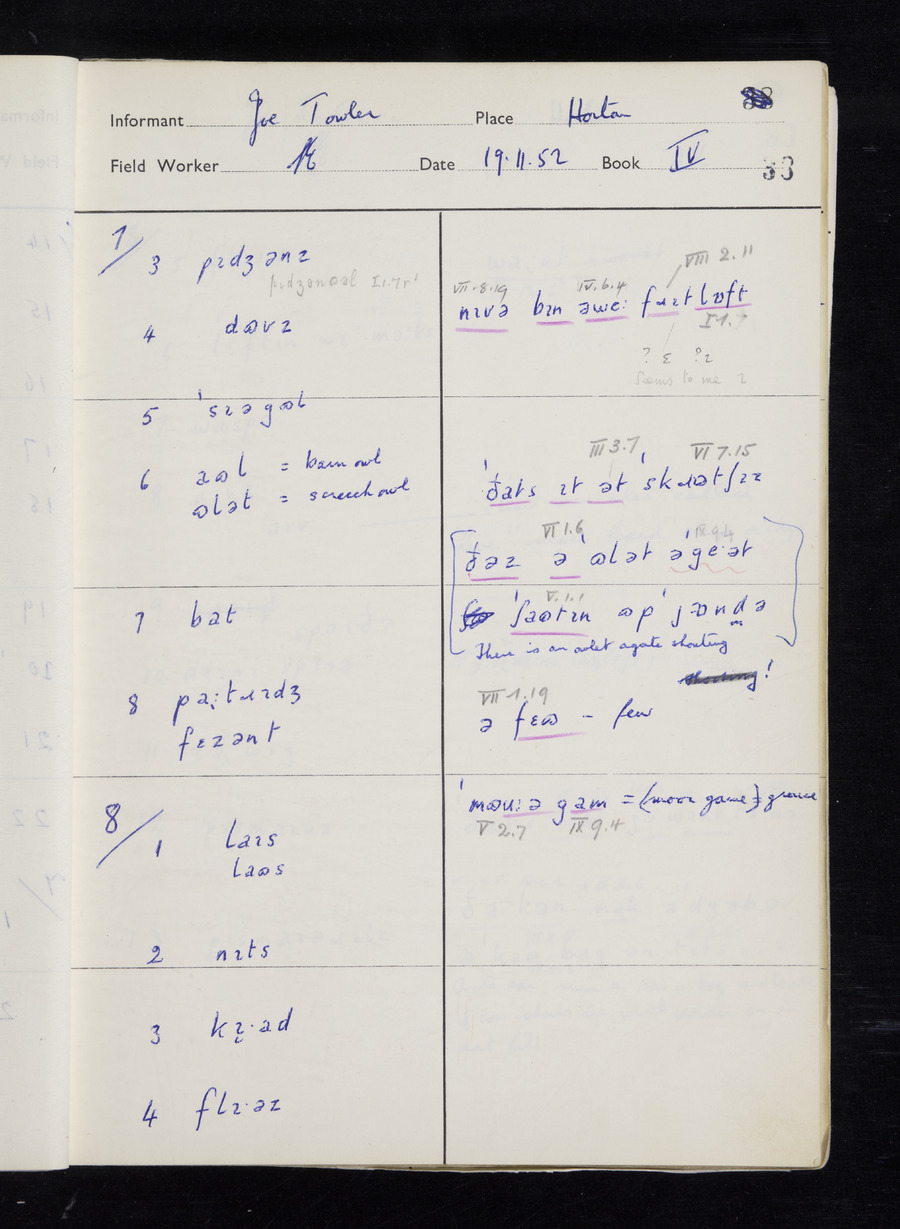 Informant Joe Towler Place Horton
Field Worker Date 19.11.52 Book IV 33
7/
3 pɪdʒənz
pɪdʒənɷəl I.1.7r'
4 dɷvz
5 'sɪəgɷl
6 aɷl = barn owl
ɷlət = screech owl
7 bat
8 paːtɹɪdʒ
fɛzənt
8/
1 laɪs
laɷs
2 nɪts
3 kɪ̞·ad
4 flɪ·əz
VIII 2.11
VII.8.19 IV.6.4
nɪvə bɪn əweː fɹɪt lɒft
I 1.7
? ɛ ?ɪ
Seems to me ɪ
III 3.7 VI 7.15
'ðats ɪt ət 'skɹɪətʃɪz
VI 1.6 IX 9.4
ðəz ə 'ɷlət ə'ge·ət
V.1.1
'ʃaɷtɪn ɷp 'jɒndə
There is an owlet agate shouting
shouting!
VII.1.19
ə fɛɷ – few
'mɷuːə gam = (moor game) = grouse
V 2.7 IX 9.4